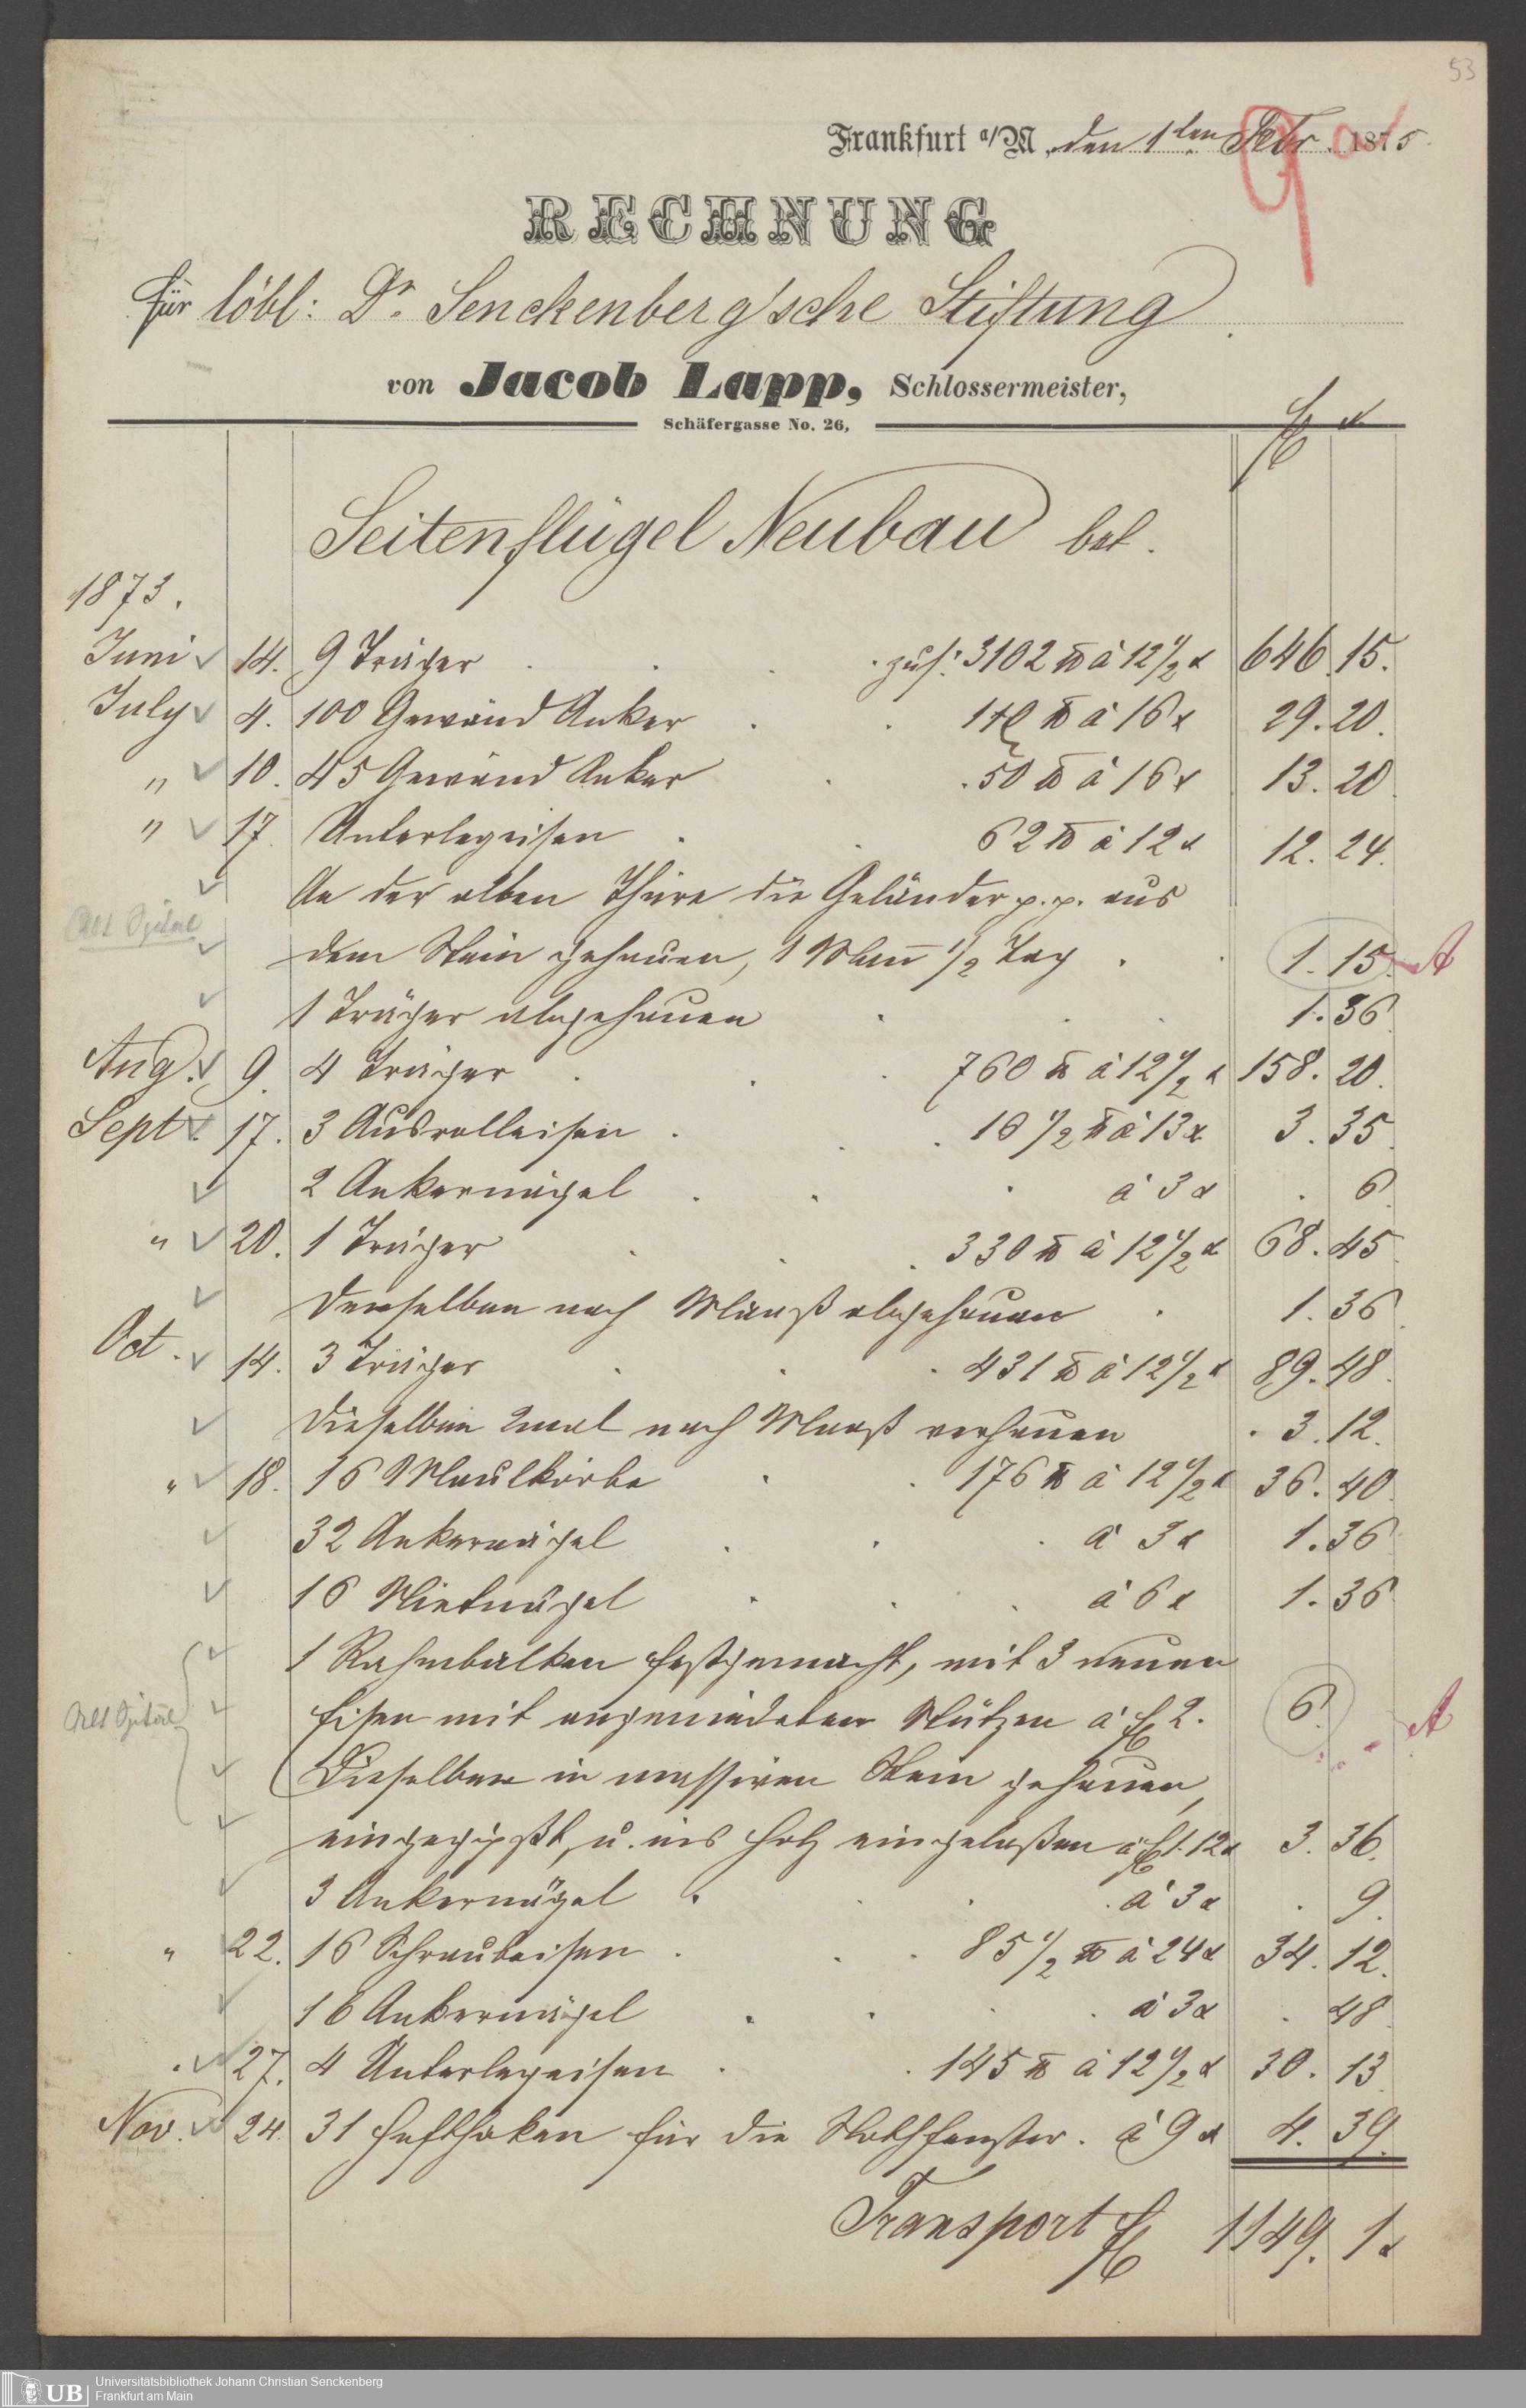 53
Frankfurt a/M, den 1ten Febr. 1875.
RECHNUNG
für löbl: Dr. Senckenberg'sche Stiftung
von Jacob Lapp, Schlossermeister,
Schäfergasse No. 26,
fl x
Seitenflügel Neubau bet.
1873.
Juni 14. 9 Träger . . . zus: 3102 ℔ à 12 1/2 x 646. 15.
July 4. 100 Gewänd Anker . . 110 ℔ à 16 x 29. 20.
" 10. 45 Gewänd Anker . . 50 ℔ à 16 x 13. 20.
" 17. Unterlegeisen . . 62 ℔ à 12 x 12. 24.
An der alten Thüre die Geländer p.p. aus
Alt Spital
dem Stein gehauen, 1 Mann 1/2 Tag . . 1. 15. A
1 Träger abgehauen . . . 1. 36.
Aug. 9. 4 Träger . . . 760 ℔ à 12 1/2 x 158. 20.
Sept. 17. 3 Ausrolleisen . . . 16 1/2 ℔ à 13 x 3. 35.
2 Ankernägel . . . à 3 x . 6.
" 20. 1 Träger . . . 330 ℔ à 12 1/2 x 68. 45.
Denselben nach Maaß abgehauen . 1. 36.
Oct. 14. 3 Träger . . . 431 ℔ à 12 1/2 x 89. 48.
Dieselben 2mal nach Maaß verhauen . 3. 12.
" 18. 16 Maulkörbe . . 176 ℔ à 12 1/2 x 36. 40.
32 Ankernägel . . . à 3 x 1. 36.
16 Nietnägel . . . à 6 x 1. 36.
1 Rahmbalken festgemacht, mit 3 neuen
Alt Spital
Eisen mit angenieteten Stützen à fl 2. 6. A
Dieselben in massiven Stein gehauen,
eingegipßt, u. ins Holz eingelaßen à fl 1. 12 x 3. 36.
3 Ankernägel . . . à 3 x . 9.
" 22. 16 Schraubeisen . . . 85 1/2 ℔ à 24 x 34. 12.
16 Ankernägel . . . . à 3 x . 48.
" 27. 4 Unterlegeisen . . 145 ℔ à 12 1/2 x 30. 13.
Nov. 24. 31 Hefthaken für die Nothfenster. à 9 x 4. 39.
Transport fl 1149. 1 x
UB
Universitätsbibliothek Johann Christian Senckenberg
Frankfurt am Main